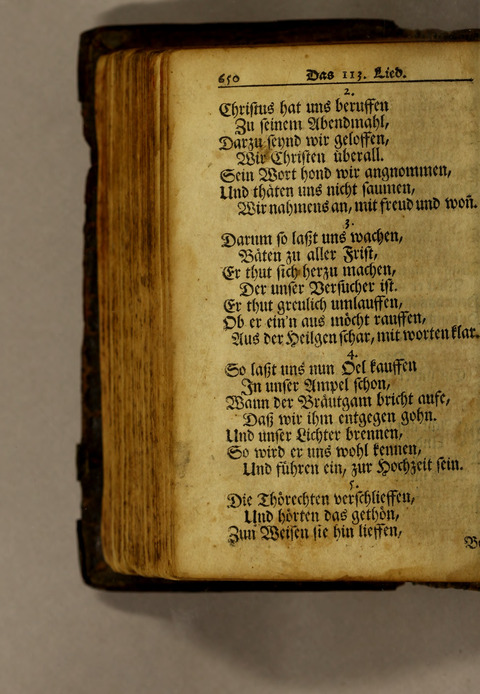 650 Das 113. Lied.
2.
Christus hat uns beruffen
Zu seinem Abendmahl,
Darzu seynd wir geloffen,
Wir Christen überall.
Sein Wort hond wir angnommen,
Und thäten uns nicht saumen,
Wir nahmens an, mit freud und woñ.
3.
Darum so laßt uns wachen,
Bäten zu aller Frist,
Er thut sich herzu machen,
Der unser Versucher ist.
Er thut greulich umlauffen,
Ob er ein'n aus möcht rauffen,
Aus der Heilgen schar, mit worten klar.
4.
So laßt uns nun Oel kauffen
In unser Ampel schon,
Wann der Bräutgam bricht aufe,
Daß wir ihm entgegen gohn.
Und unser Lichter brennen,
So wird er uns wohl kennen,
Und führen ein, zur Hochzeit sein.
5.
Die Thörechten verschlieffen,
Und hörten das gethön,
Zun Weisen sie hin lieffen,